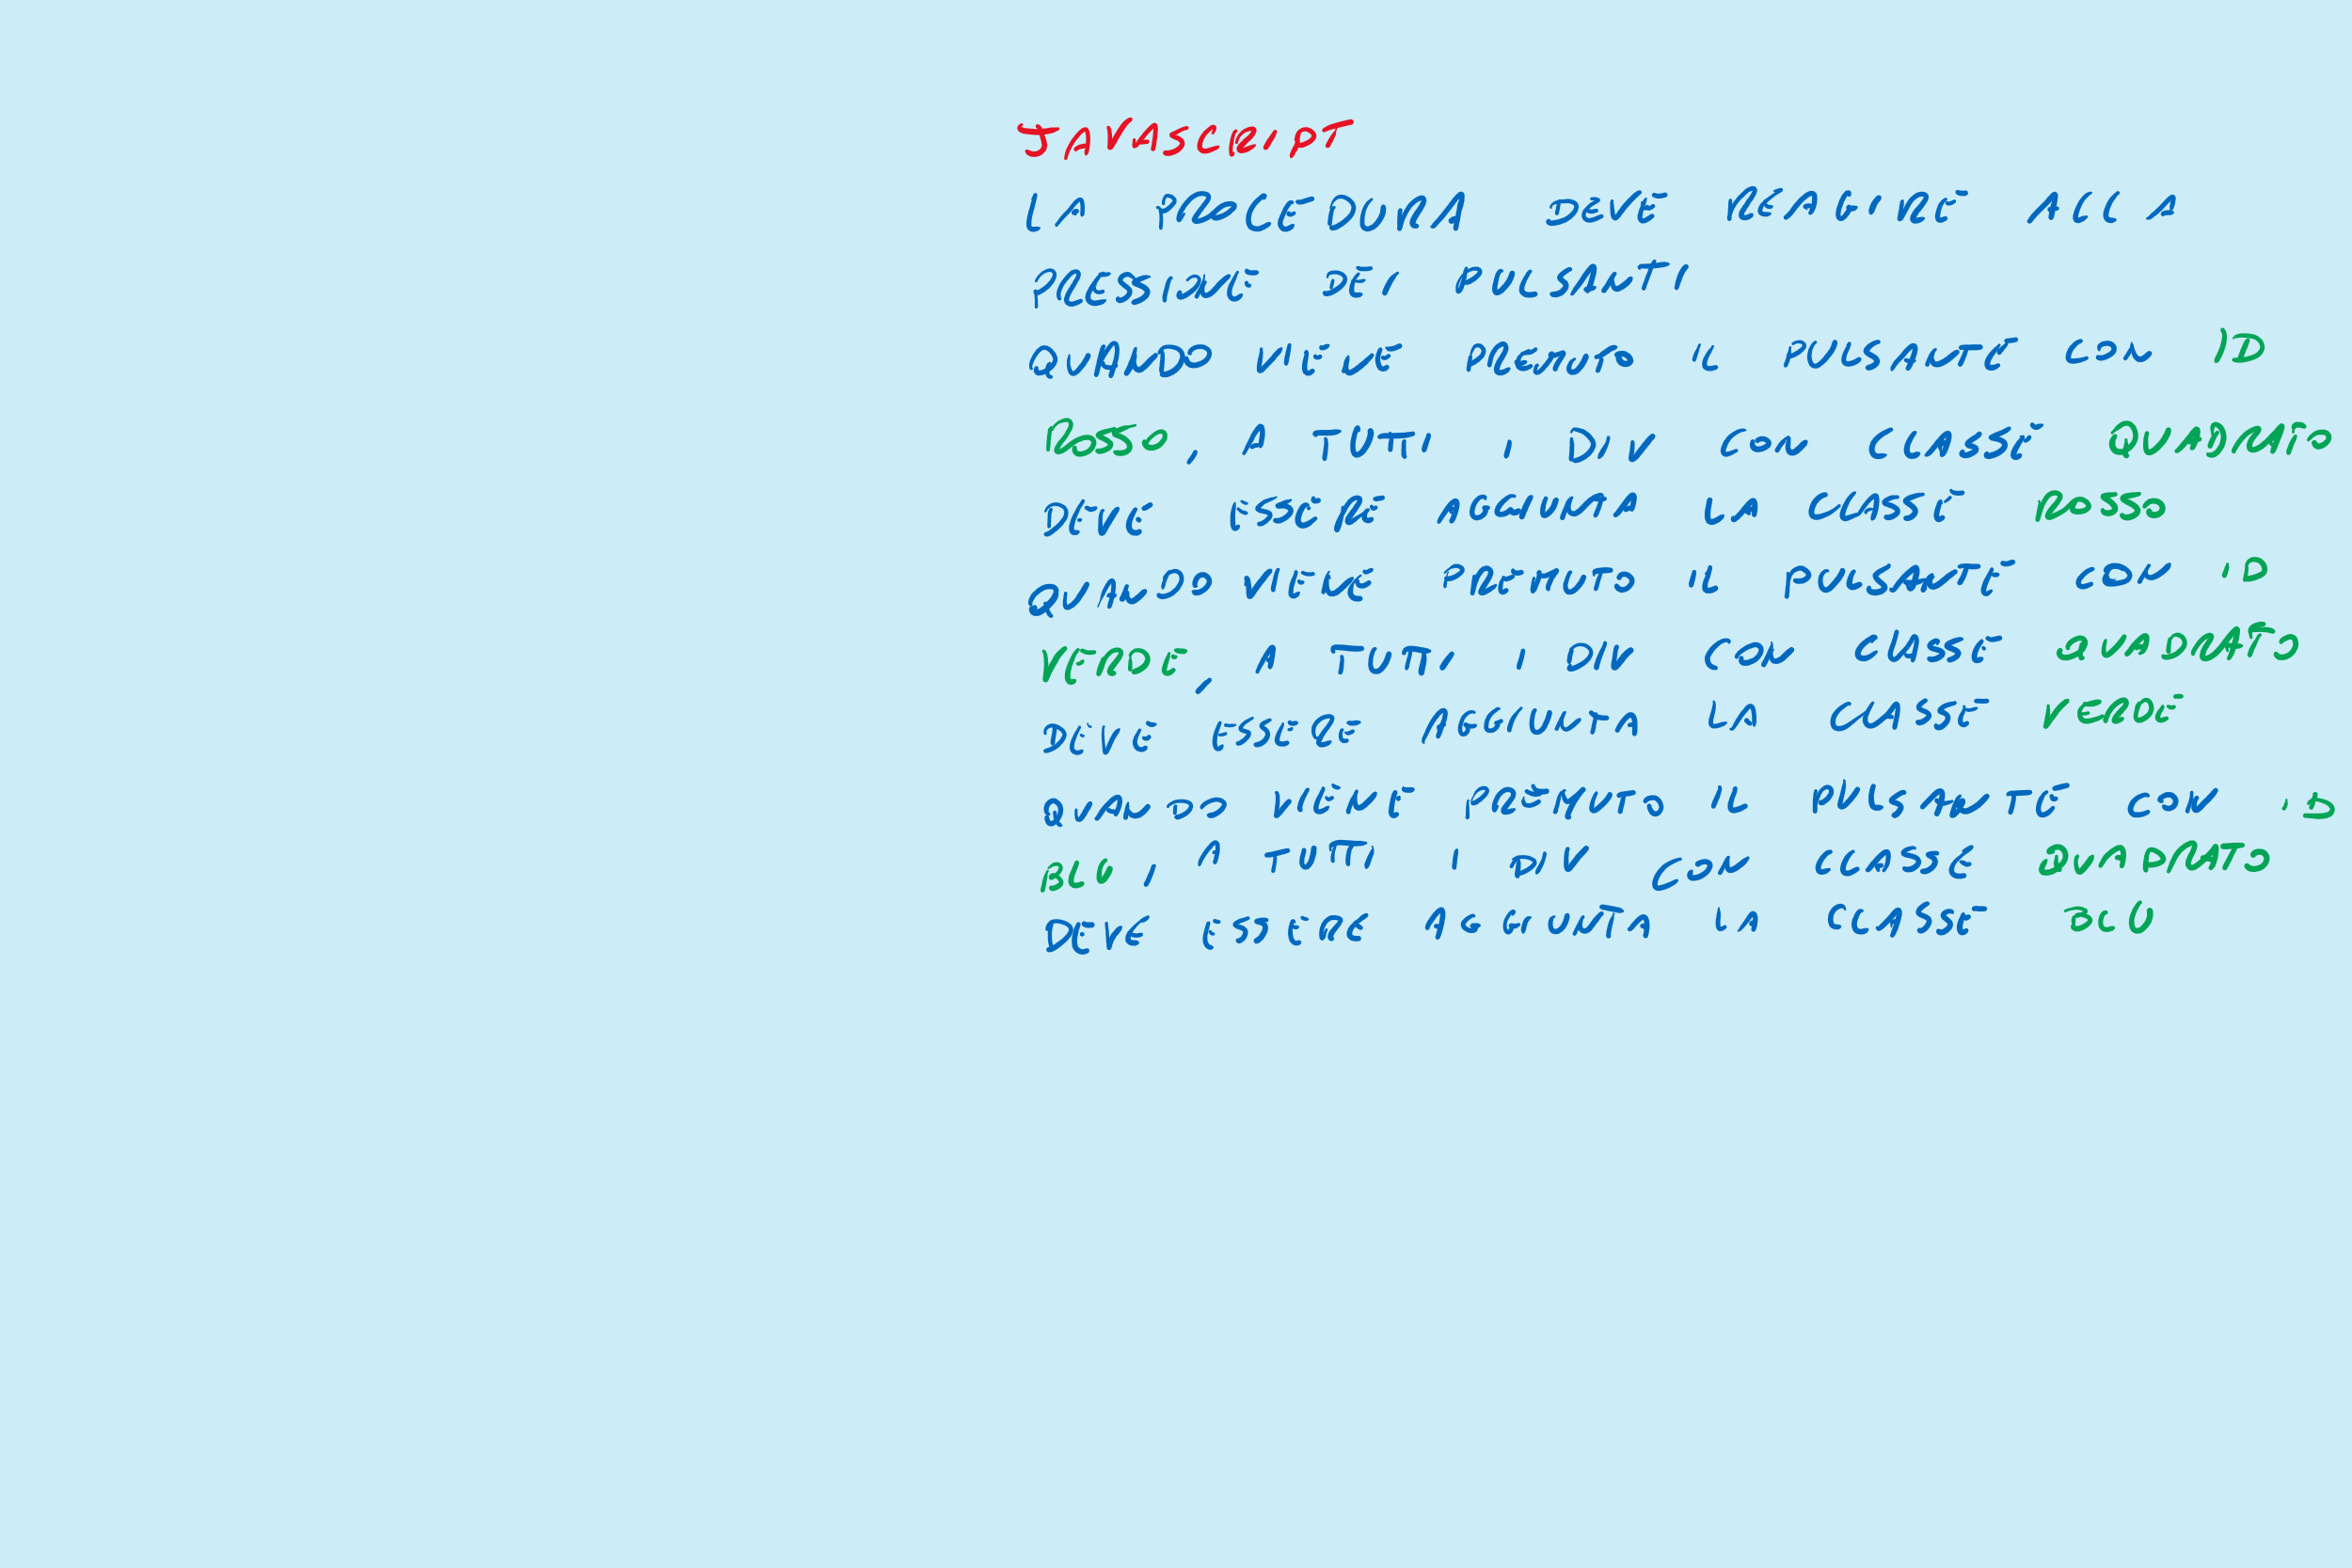 JAVASCRIPT
LA PROCEDURA DEVE REAGIRE ALLA
PRESSIONE DEI PULSANTI
QUANDO VIENE PREMUTO IL PULSANTE CON ID
ROSSO, A TUTTI I DIV CON CLASSE QUADRATO
DEVE ESSERE AGGIUNTA LA CLASSE ROSSO
QUANDO VIENE PREMUTO IL PULSANTE CON ID
VERDE, A TUTTI I DIV CON CLASSE QUADRATO
DEVE ESSERE AGGIUNTA LA CLASSE VERDE
QUANDO VIENE PREMUTO IL PULSANTE CON ID
BLU, A TUTTI I DIV CON CLASSE QUADRATO
DEVE ESSERE AGGIUNTA LA CLASSE BLU